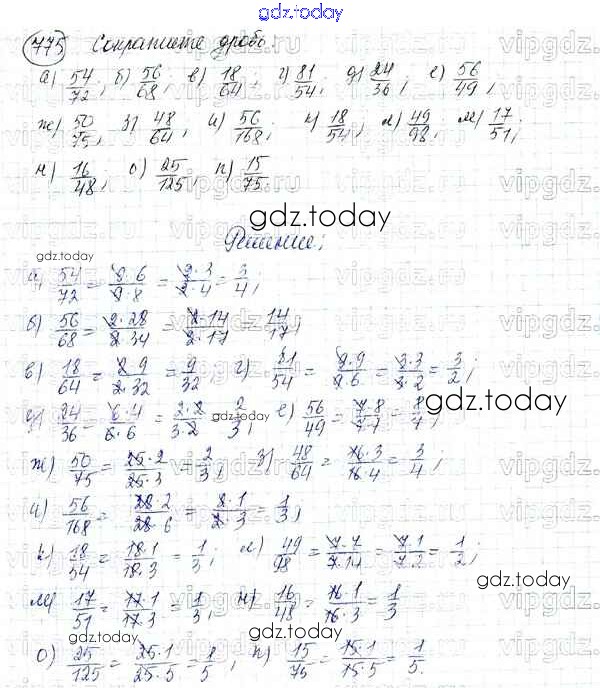 gdz.today
775 Сократите дробь:
а) 54/72; б) 56/68; в) 18/64; г) 81/54; д) 24/36; е) 56/49;
ж) 50/75; з) 48/64; и) 56/168; к) 18/54; л) 49/98; м) 17/51;
н) 16/48; о) 25/125; п) 15/75.
gdz.today
gdz.today
Решение:
а) 54/72 = 9·6/9·8 = 2·3/2·4 = 3/4;
б) 56/68 = 2·28/2·34 = 2·14/2·17 = 14/17;
в) 18/64 = 2·9/2·32 = 9/32; г) 81/54 = 9·9/9·6 = 3·3/3·2 = 3/2;
gdz.today
д) 24/36 = 6·4/6·6 = 2·2/3·2 = 2/3; е) 56/49 = 7·8/7·7 = 8/7;
ж) 50/75 = 25·2/25·3 = 2/3; з) 48/64 = 16·3/16·4 = 3/4;
и) 56/168 = 28·2/28·6 = 2·1/2·3 = 1/3;
к) 18/54 = 18·1/18·3 = 1/3; л) 49/98 = 7·7/7·14 = 7·1/7·2 = 1/2;
gdz.today
м) 17/51 = 17·1/17·3 = 1/3; н) 16/48 = 16·1/16·3 = 1/3
gdz.today
о) 25/125 = 25·1/25·5 = 1/5; п) 15/75 = 15·1/15·5 = 1/5.